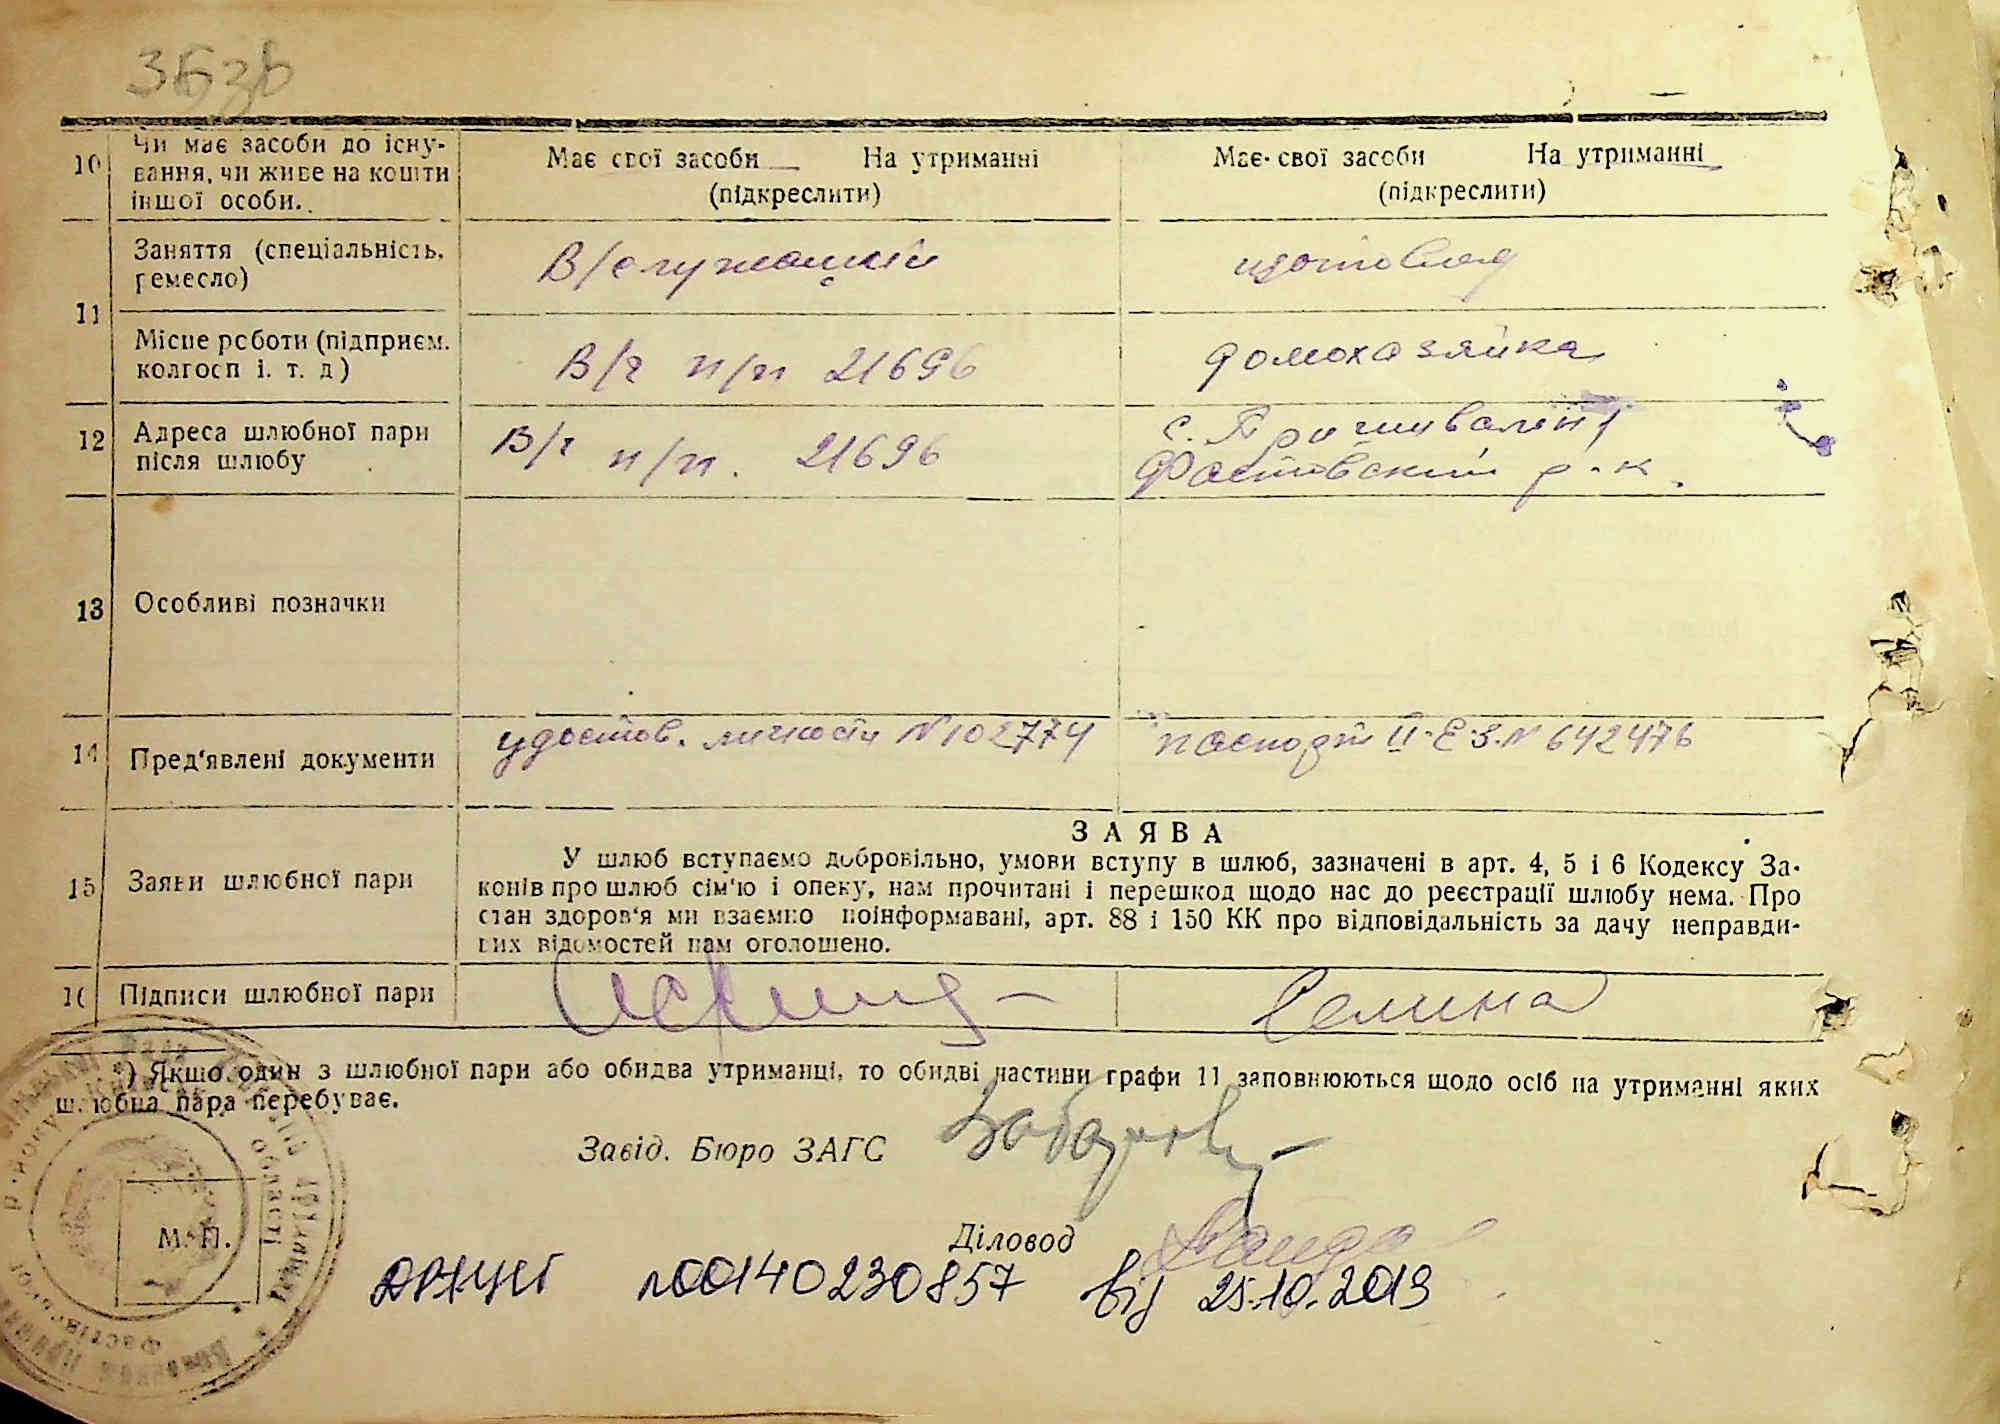 10 Чи має засоби до існу-
вання, чи живе на кошти
іншої особи.
Має свої засоби На утриманні
(підкреслити)
Має свої засоби На утриманні
(підкреслити)
11 Заняття (спеціальність,
ремесло)
В/служащий
Місце роботи (підприєм.
колгосп і. т. д)
В/ч п/п 21696
домохазяйка
12 Адреса шлюбної пари
після шлюбу
В/ч п/п. 21696
с.
Фастовский р-н.
13 Особливі позначки
14 Пред'явлені документи
удостов. личности N 102774
паспорт II-ЕЗ N 642476
15 Заяви шлюбної пари
ЗАЯВА
У шлюб вступаємо добровільно, умови вступу в шлюб, зазначені в арт. 4, 5 і 6 Кодексу За-
конів про шлюб сім'ю і опеку, нам прочитані і перешкод щодо нас до реєстрації шлюбу нема. Про
стан здоров'я ми взаємно поінформавані, арт. 88 і 150 КК про відповідальність за дачу неправди-
вих відомостей нам оголошено.
16 Підписи шлюбної пари
Селина
*) Якщо один з шлюбної пари або обидва утриманці, то обидві частини графи 11 заповнюються щодо осіб на утриманні яких
шлюбна пара перебуває.
Завід. Бюро ЗАГС
Діловод
М. П.
ДРАЦСГ №00140230857 від 25.10.2019